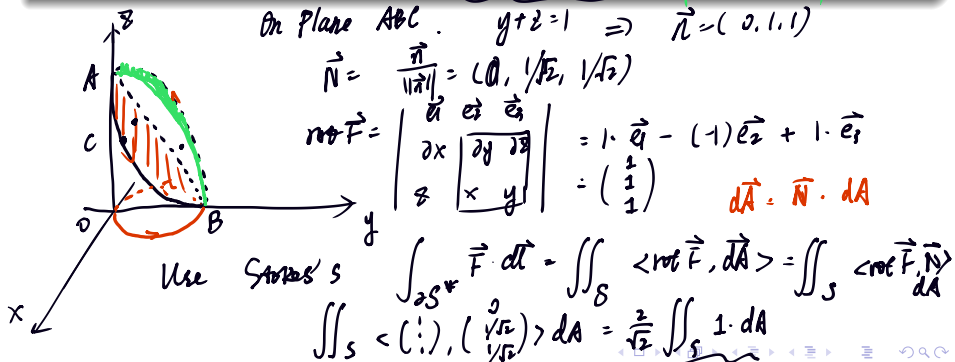 On Plane ABC. y+z=1 ⇒ n⃗=(0,1,1)
N⃗ = n⃗/||n⃗|| = (0, 1/√2, 1/√2)
rot F⃗ = | e⃗₁ e⃗₂ e⃗₃ ; ∂x ∂y ∂z ; z x y | = 1·e⃗₁ − (−1)e⃗₂ + 1·e⃗₃
= (1 1 1)
dA⃗ = N⃗·dA
z
A
C
O
B
y
x
Use Stokes's ∫_∂S⁺ F⃗·dl⃗ = ∬_S <rot F⃗, dA⃗> = ∬_S <rot F⃗, N⃗> dA
∬_S <(1 1 1), (0 1/√2 1/√2)> dA = 2/√2 ∬_S 1·dA